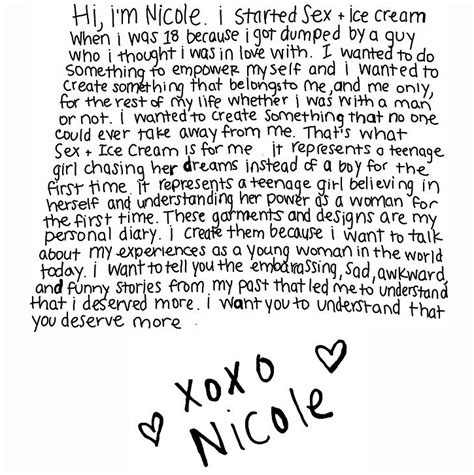 Hi, i'm Nicole. i started Sex + ice cream
when i was 18 because i got dumped by a guy
who i thought i was in love with. I wanted to do
something to empower myself and i wanted to
create something that belongs to me, and me only,
for the rest of my life whether i was with a man
or not. i wanted to create something that no one
could ever take away from me. That's what
Sex + Ice Cream is for me. it represents a teenage
girl chasing her dreams instead of a boy for the
first time. it represents a teenage girl believing in
herself and understanding her power as a woman for
the first time. These garments and designs are my
personal diary. i create them because i want to talk
about my experiences as a young woman in the world
today. i want to tell you the embarassing, sad, awkward,
and funny stories from my past that led me to understand
that i deserved more. i want you to understand that
you deserve more.
xoxo
Nicole